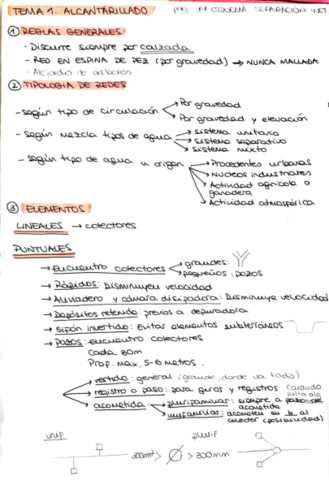 TEMA 1. ALCANTARILLADO
① REGLAS GENERALES
- Discurre siempre por calzada
- RED EN ESPINA DE PEZ (por gravedad) → NUNCA MALLADA
- Alejado de
② TIPOLOGIA DE REDES
- según tipo de circulación → Por gravedad
→ Por gravedad y elevación
- según mezcla tipos de agua → sistema unitario
→ sistema separativo
→ sistema mixto
- según tipo de agua u origen → Procedentes urbanas
→ Nucleos industriales
→ Actividad agricola o
ganadera
→ Actividad atmosférica
③ ELEMENTOS
LINEALES → colectores
PUNTUALES
→ Encuentro colectores → grandes:
→ pequeños: pozos
→ Rápidos: Disminuyen velocidad
→ Aliviadero y cámara disipadora: Disminuye velocidad
→ Depósitos retenido: previos a depuradora
→ Sifón invertido: Evitar elementos subterráneos
→ Pozos: encuentro colectores
cada 80m
Prof. max. 5-6 metros.
→ vertido: general (grande, donde va todo)
→ registro o paso: para giros y registros (cuando
→ acometida → plurifamiliar: siempre a
acometida
→ unifamiliar: acometen en al
colector (posibilidad)
unif
plurif
> 300mm